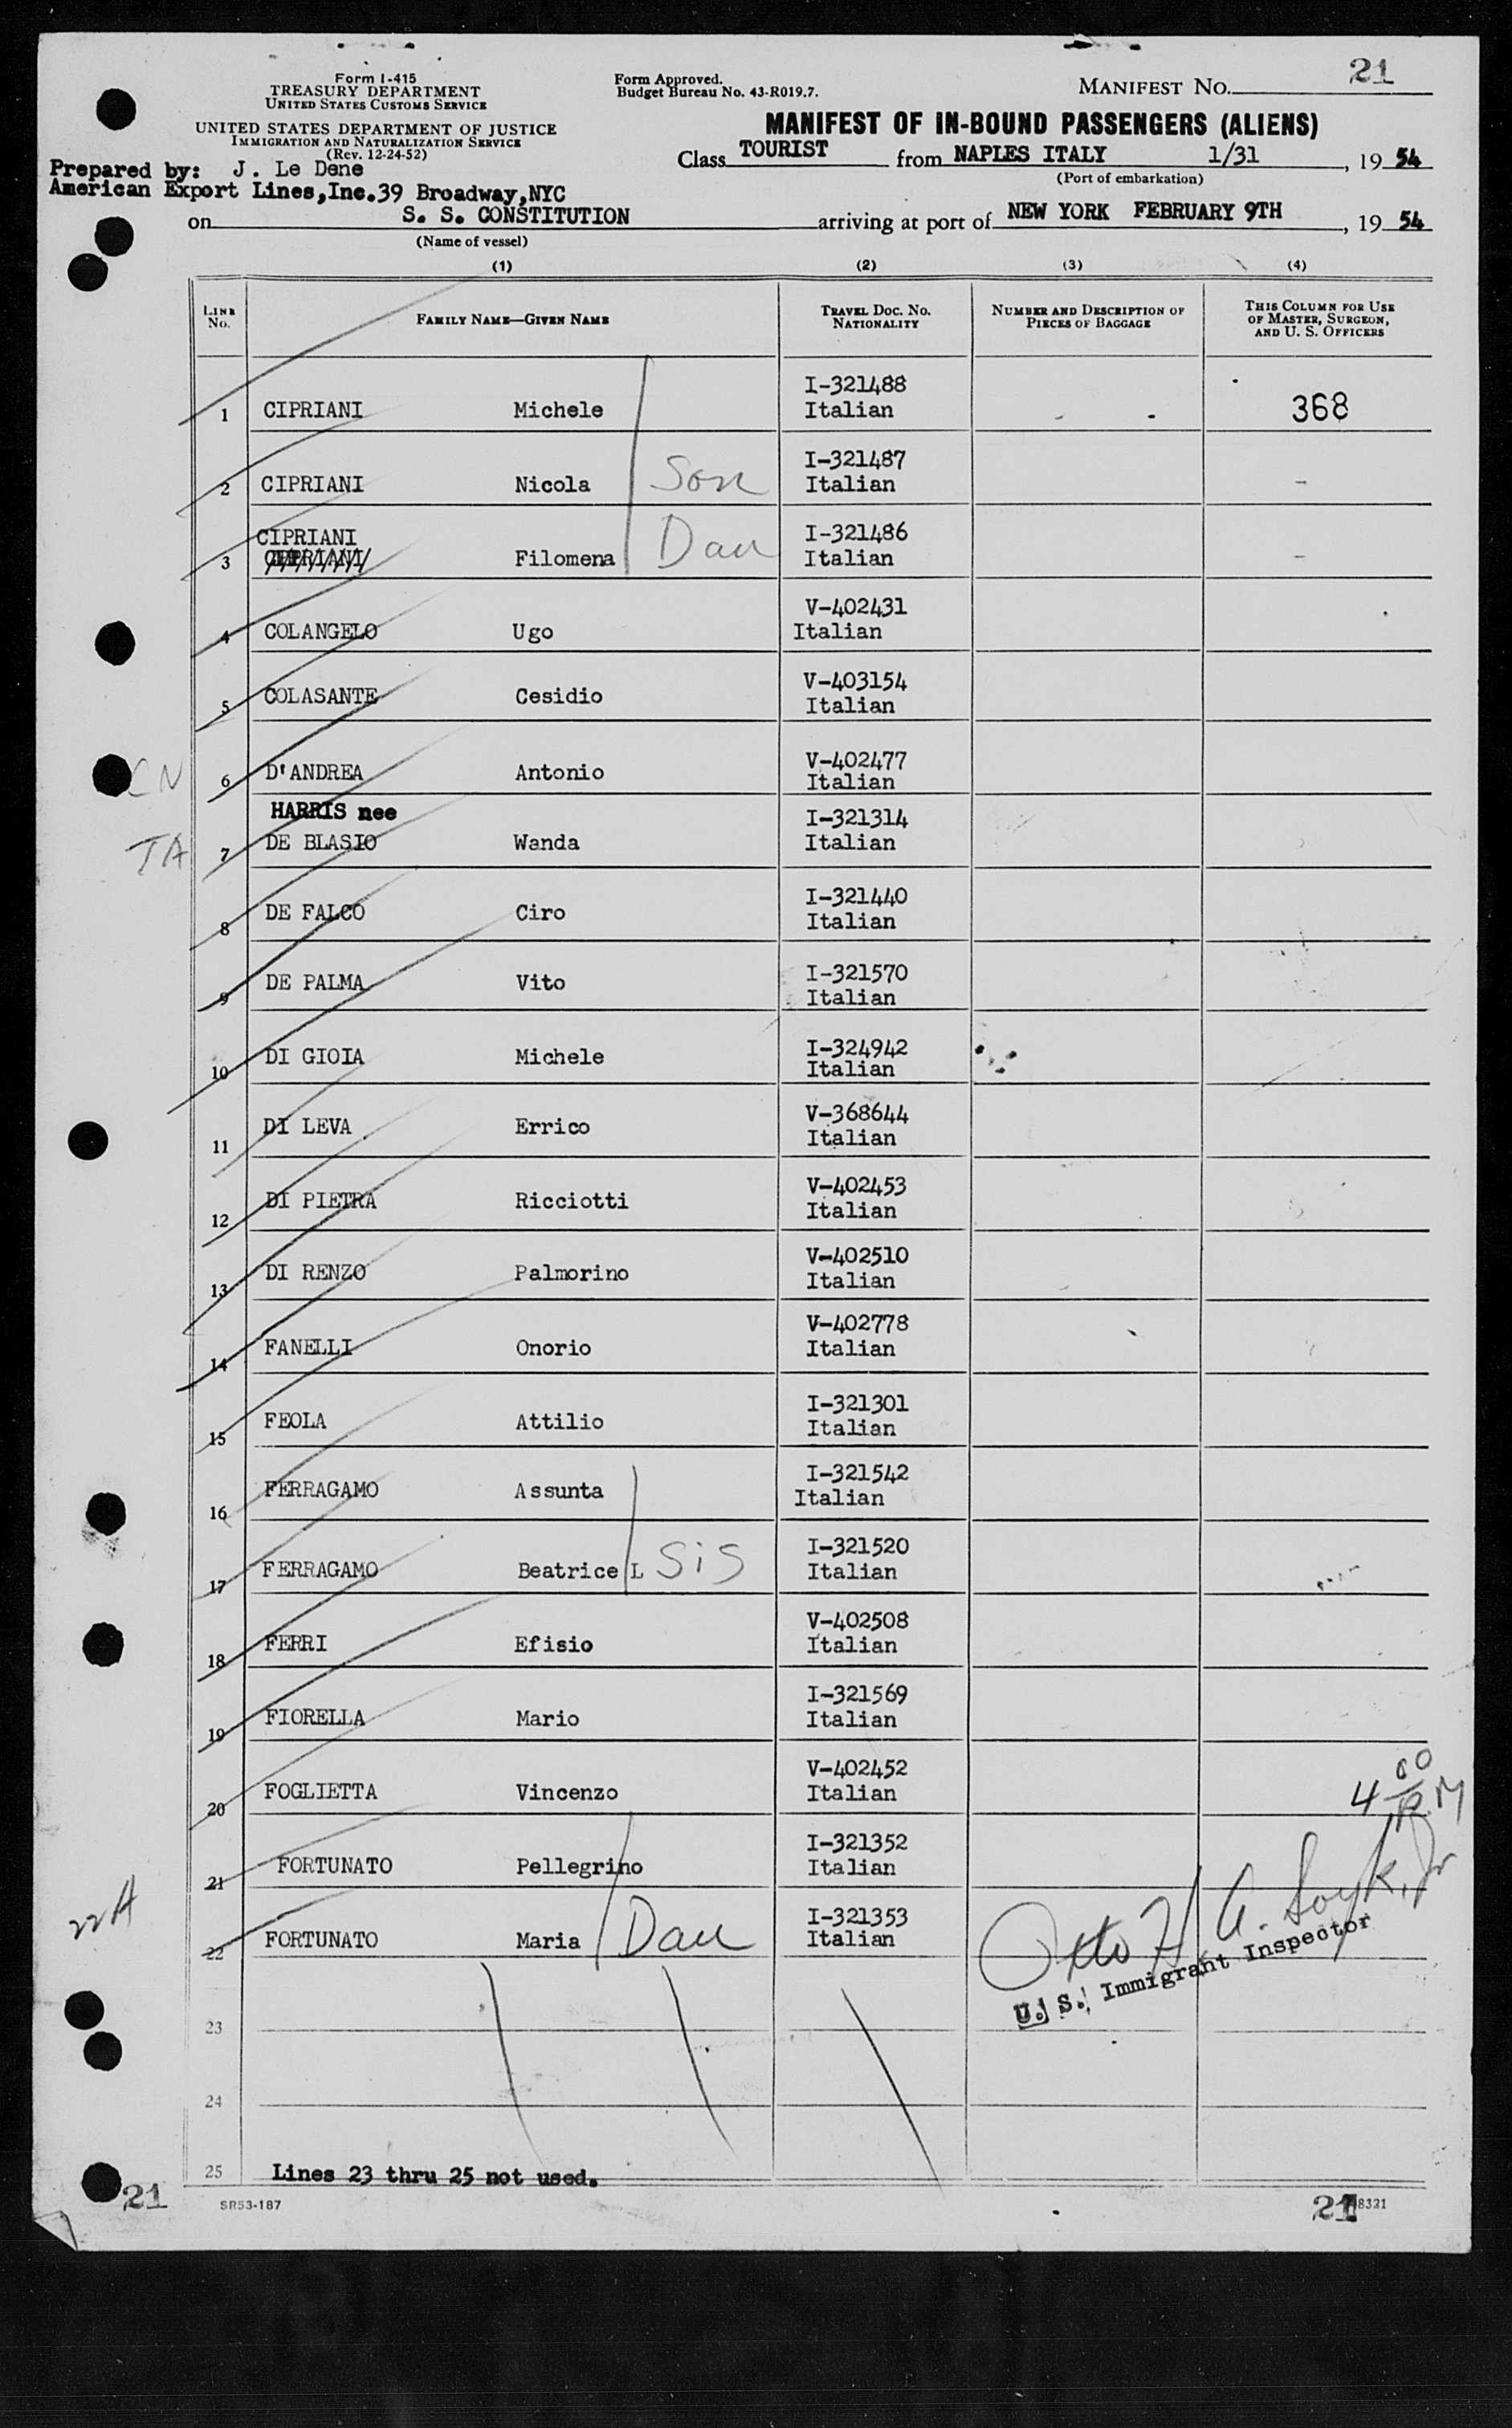 Form I-415
TREASURY DEPARTMENT
UNITED STATES CUSTOMS SERVICE
UNITED STATES DEPARTMENT OF JUSTICE
IMMIGRATION AND NATURALIZATION SERVICE
(Rev. 12-24-52)
Form Approved.
Budget Bureau No. 43-R019.7.
MANIFEST NO. 21
MANIFEST OF IN-BOUND PASSENGERS (ALIENS)
Class TOURIST from NAPLES ITALY 1/31, 19 54
(Port of embarkation)
Prepared by: J. Le Dene
American Export Lines,Inc.39 Broadway,NYC
on S. S. CONSTITUTION arriving at port of NEW YORK FEBRUARY 9TH, 19 54
(Name of vessel)
(1) (2) (3) (4)
LINE No. FAMILY NAME—GIVEN NAME TRAVEL DOC. NO. NATIONALITY NUMBER AND DESCRIPTION OF PIECES OF BAGGAGE THIS COLUMN FOR USE OF MASTER, SURGEON, AND U. S. OFFICERS
I-321488
1 CIPRIANI Michele Italian 368
I-321487
2 CIPRIANI Nicola Son Italian -
CIPRIANI I-321486
3 Filomena Dau Italian -
V-402431
4 COLANGELO Ugo Italian
V-403154
5 COLASANTE Cesidio Italian
V-402477
CN 6 D'ANDREA Antonio Italian
HARRIS nee I-321314
JA 7 DE BLASIO Wanda Italian
I-321440
8 DE FALCO Ciro Italian
I-321570
9 DE PALMA Vito Italian
I-324942
10 DI GIOIA Michele Italian
V-368644
11 DI LEVA Errico Italian
V-402453
12 DI PIETRA Ricciotti Italian
V-402510
13 DI RENZO Palmorino Italian
V-402778
14 FANELLI Onorio Italian
I-321301
15 FEOLA Attilio Italian
I-321542
16 FERRAGAMO Assunta Italian
I-321520
17 FERRAGAMO Beatrice L Sis Italian
V-402508
18 FERRI Efisio Italian
I-321569
19 FIORELLA Mario Italian
V-402452
20 FOGLIETTA Vincenzo Italian
4 00 P.M
I-321352
21 FORTUNATO Pellegrino Italian
22A
I-321353
22 FORTUNATO Maria Dau Italian
Otto H. A. Soyk, Jr
U. S. Immigrant Inspector
23
24
25 Lines 23 thru 25 not used.
21 SR53-187 21 8321